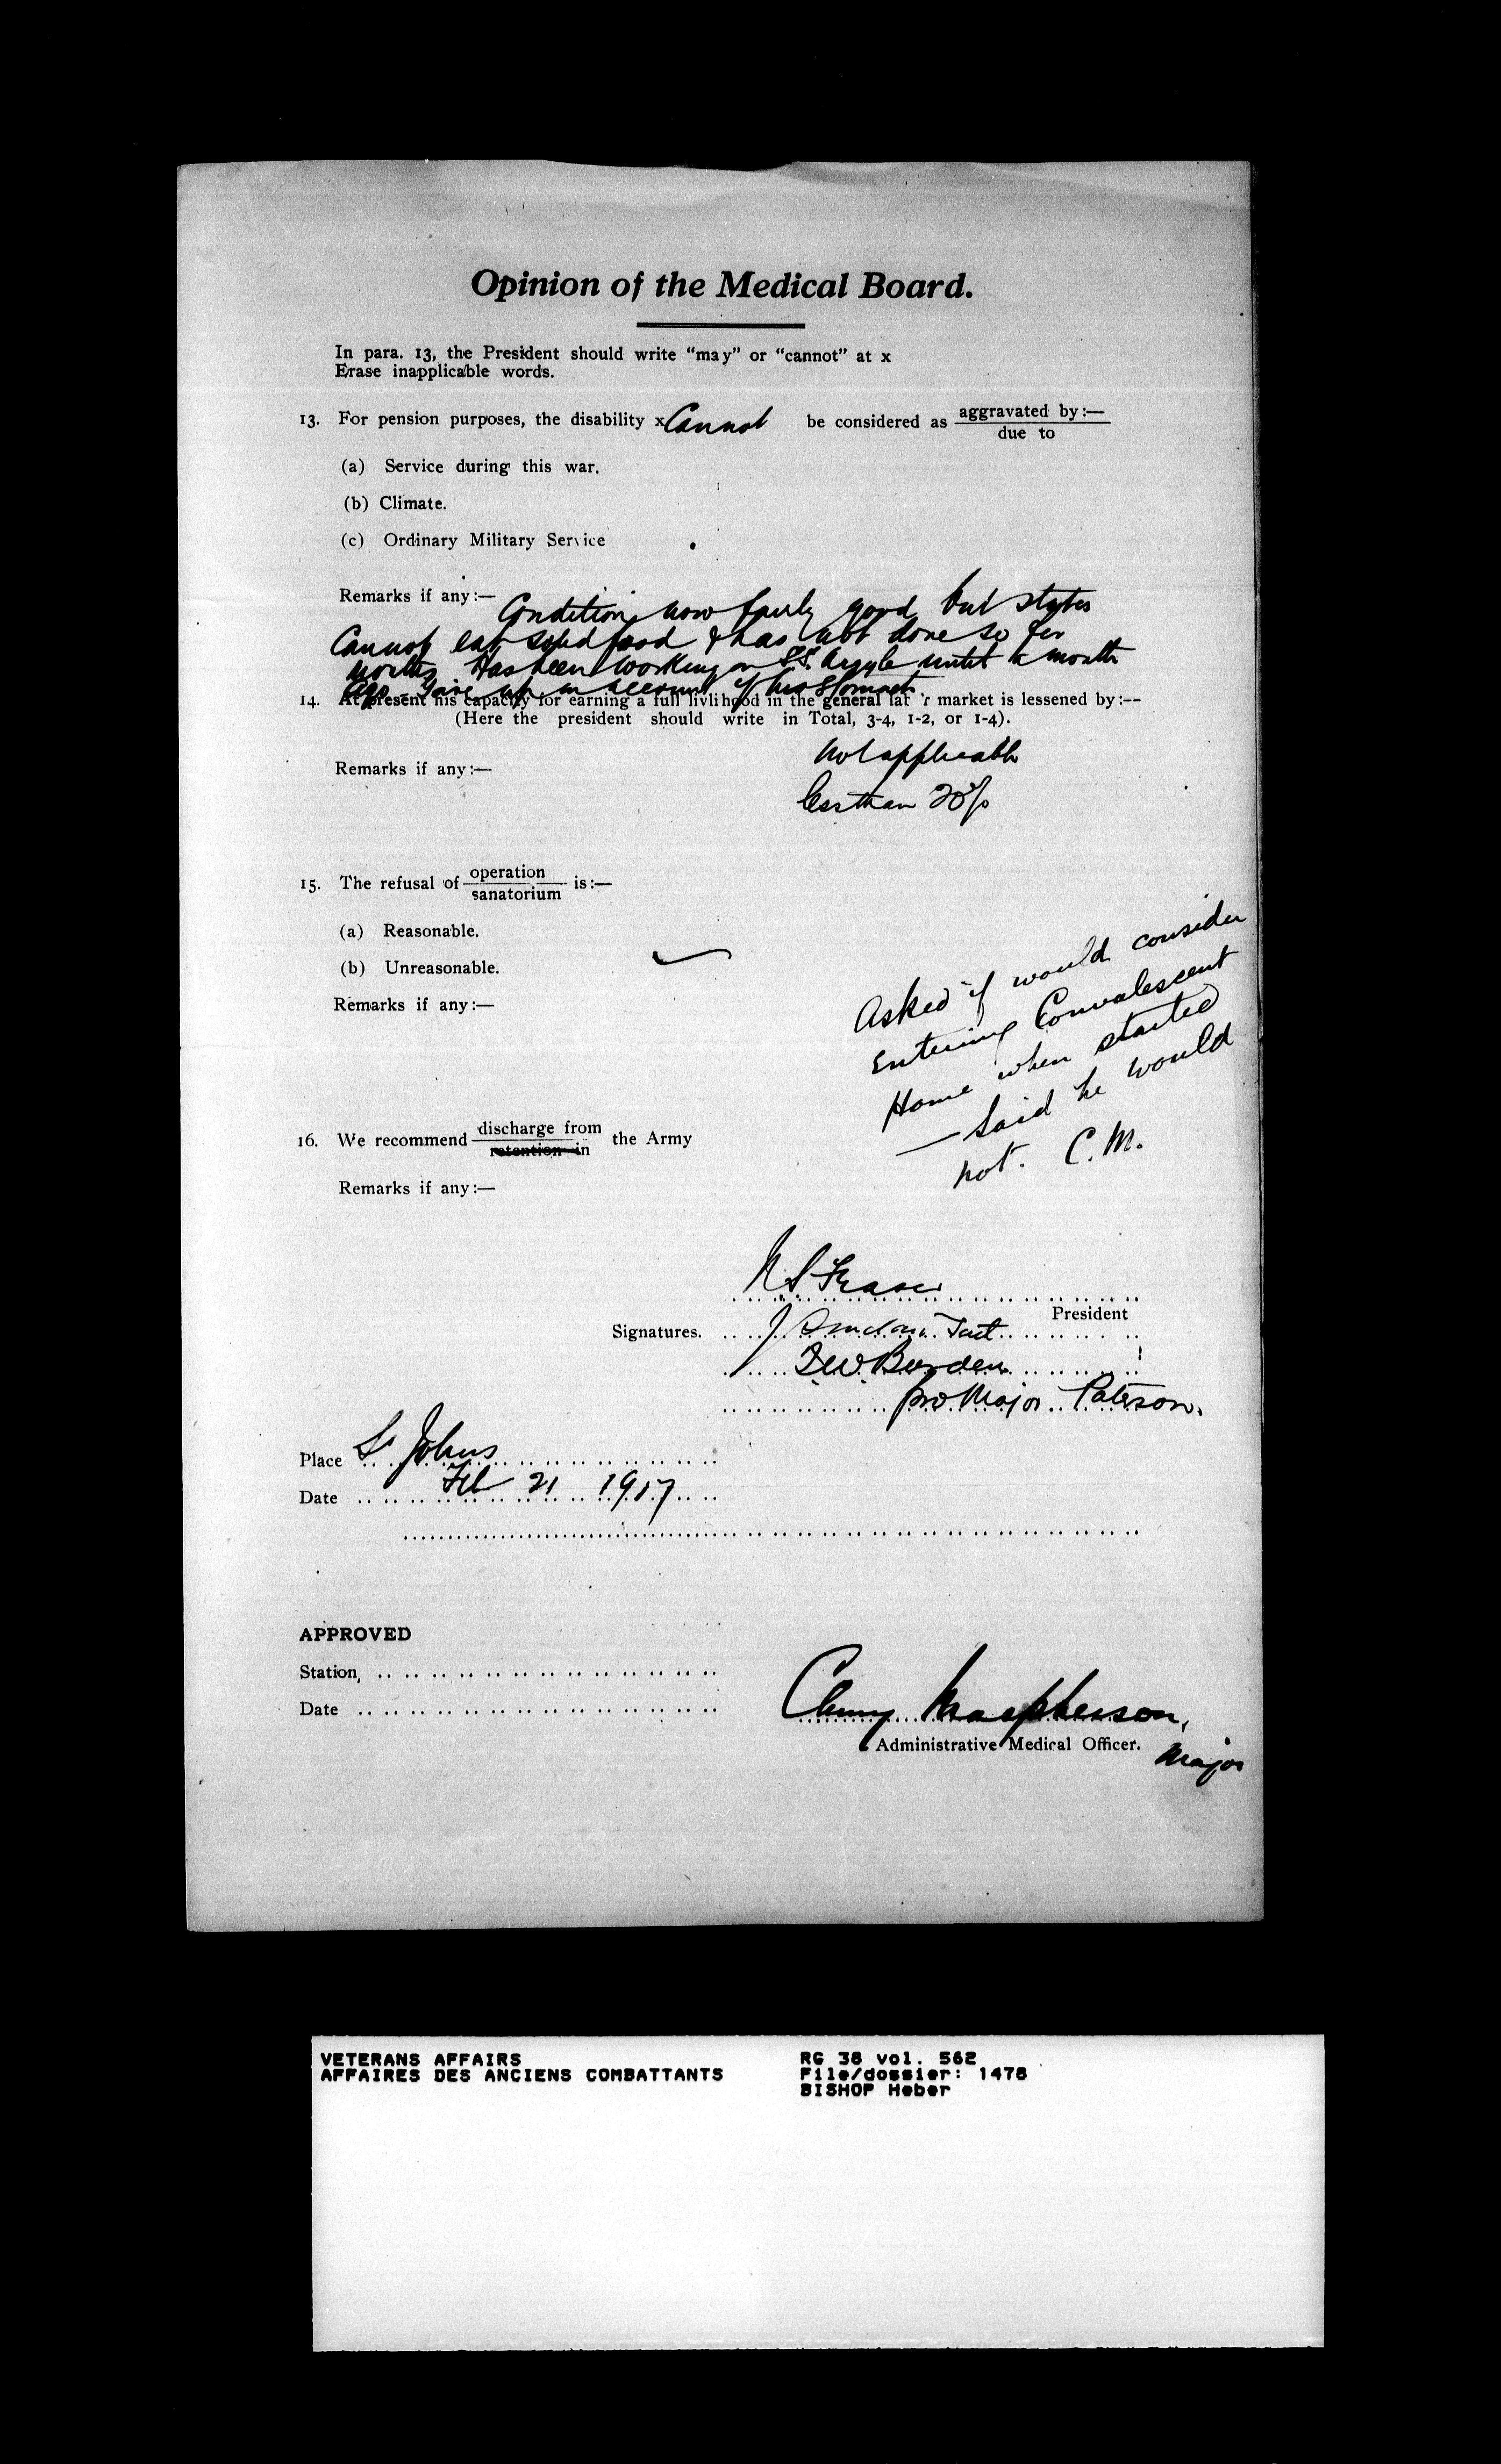 Opinion of the Medical Board.
In para. 13, the President should write “may” or “cannot” at x
Erase inapplicable words.
13. For pension purposes, the disability x Cannot be considered as aggravated by:— / due to
(a) Service during this war.
(b) Climate.
(c) Ordinary Military Service
Remarks if any:— Condition now fairly good but states
Cannot eat solid food & has not done so for
months. Has been working on SS. Argyle until a month
ago - gave up on account of his stomach.
14. At present his capacity for earning a full livlihood in the general lab r market is lessened by:—
(Here the president should write in Total, 3-4, 1-2, or 1-4).
Not applicable
Remarks if any:—
less than 20%
15. The refusal of operation / sanatorium is:—
(a) Reasonable.
(b) Unreasonable.
Remarks if any:—
Asked if would consider
Entering Convalescent
Home when started
— Said he would
not. C.M.
16. We recommend discharge from / retention in the Army
Remarks if any:—
N S Fraser
President
Signatures. J Tait
Burden
pro Major Paterson.
Place St Johns
Date Feb 21 1917
APPROVED
Station,
Date
Cluny Macpherson,
Administrative Medical Officer.
Major
VETERANS AFFAIRS RG 38 vol. 562
AFFAIRES DES ANCIENS COMBATTANTS File/dossier: 1478
BISHOP Heber